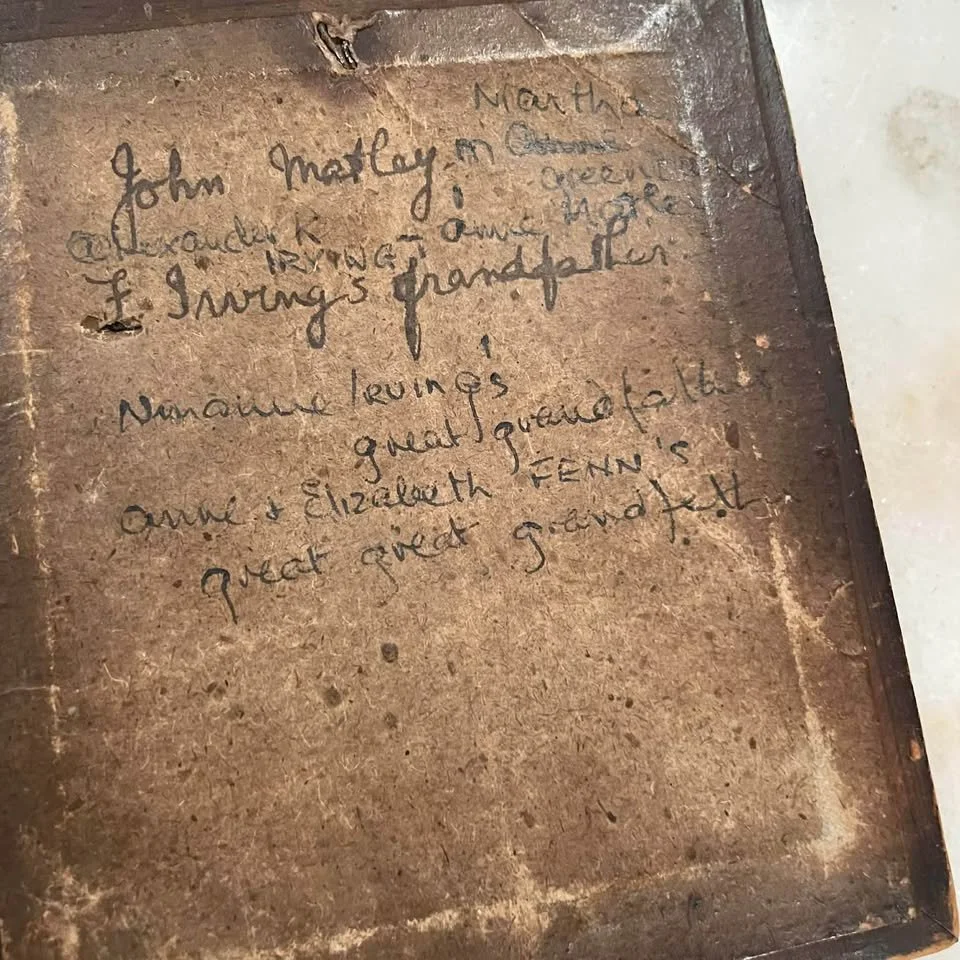 Martha
John Matley m
Greenwood
Alexander K Annie Matley
IRVING
F Irving's grandfather
Ninanne Irving's
great grandfather
Anne + Elizabeth FENN'S
great great grandfather